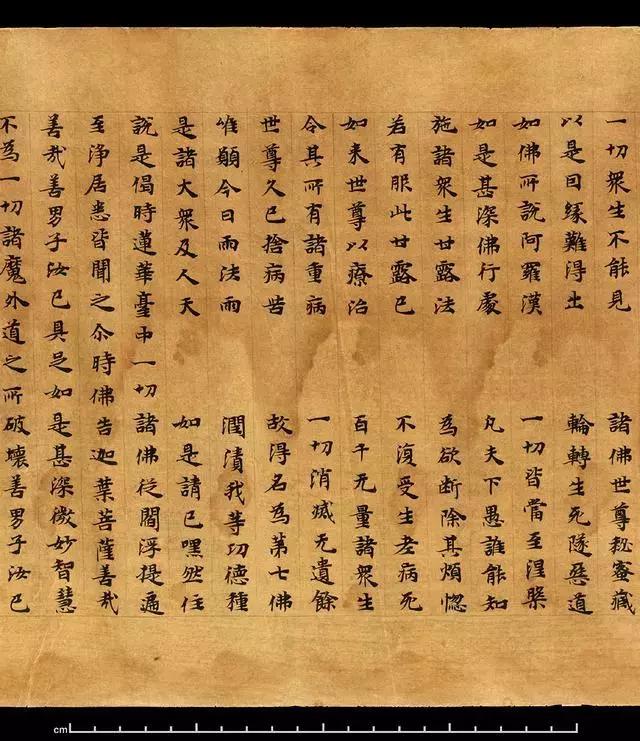 一切衆生不能見 諸佛世尊秘蜜藏
以是因緣難得出 輪轉生死隧惡道
如佛所說阿羅漢 一切皆當至涅槃
如是甚深佛行處 凡夫下愚誰能知
施諸衆生甘露法 為欲断除其煩惱
若有服此甘露已 不復受生老病死
如来世尊以療治 百千无量諸衆生
令其所有諸重病 一切消滅无遺餘
世尊久已捨病苦 故得名為第七佛
唯願今日雨法雨 潤漬我等功德種
是諸大衆及人天 如是請已嘿然住
說是偈時蓮華臺中一切諸佛從閻浮提遍
至淨居悉皆聞之尒時佛告迦葉菩薩善哉
善哉善男子汝已具足如是甚深微妙智慧
不為一切諸魔外道之所破壞善男子汝已
cm